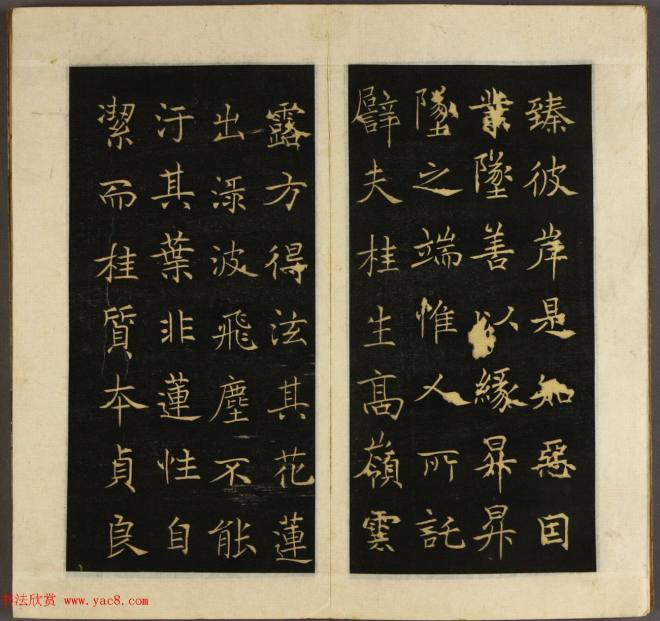 臻彼岸是知惡因
業墜善以緣昇昇
墜之端惟人所託
譬夫桂生高嶺雲
露方得泫其花蓮
出淥波飛塵不能
汙其葉非蓮性自
潔而桂質本貞良
书法欣赏 www.yac8.com